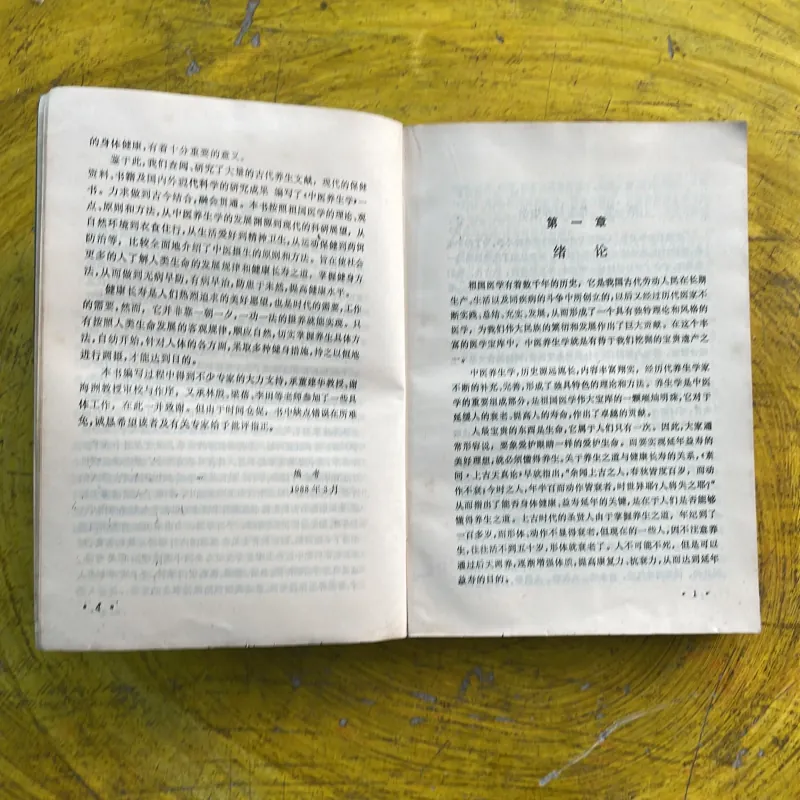 的身体健康，有着十分重要的意义。
鉴于此，我们查阅、研究了大量的古代养生文献，现代的保健
资料、书籍及国内外现代科学的研究成果 编写了《中医养生学》一
书。力求做到古今结合，融会贯通。本书按照祖国医学的理论、观
点、原则和方法，从中医养生学的发展渊源到现代的科研展望，从
自然环境到衣食住行，从生活爱好到精神卫生，从运动保健到药饵
防治等，比较全面地介绍了中医摄生的原则和方法。旨在使社会
更多的人了解人类生命的发展规律和健康长寿之道，掌握健身方
法，从而做到无病早防，有病早治，防患于未然，提高健康水平。
健康长寿是人们热烈追求的美好愿望，也是时代的需要，工作
的需要，然而，它并非靠一朝一夕，一功一法的摄养就能实现。只
有按照人类生命发展的客观规律，顺应自然，切实掌握养生具体方
法，自动开始，针对人体的各方面，采取多种健身措施，持之以恒地
进行调摄，才能达到目的。
本书编写过程中得到不少专家的大力支持，承董建华教授，谢
海洲教授审校与作序，又承林殷、梁蓓、李田等老师参加了一些具
体工作，在此一并致谢。但由于时间仓促，书中缺点错误在所难
免，诚恳希望读者及有关专家给予批评指正。
编 者
1988年3月
· 4 ·
第 一 章
绪 论
祖国医学有着数千年的历史，它是我国古代劳动人民在长期
生产、生活以及同疾病的斗争中所创立的，以后又经过历代医家不
断实践、总结、充实、发展，从而形成了一个具有独特理论和风格的
医学，为我们伟大民族的繁衍和发展作出了巨大贡献。在这个丰
富的医学宝库中，中医养生学就是有待于我们挖掘的宝贵遗产之
一。
中医养生学，历史源远流长，内容丰富翔实，经历代养生学家
不断的补充、完善，形成了独具特色的理论和方法。养生学是中医
学的重要组成部分，是祖国医学伟大宝库的一颗璀灿明珠，它对于
延缓人的衰老、提高人的寿命，作出了卓越的贡献。
人最宝贵的东西是生命，它属于人们只有一次。因此，大家通
常形容说，要象爱护眼睛一样的爱护生命。而要实现延年益寿的
美好理想，就必须懂得养生。关于养生之道与健康长寿的关系，《素
问·上古天真论》早就指出，“余闻上古之人，春秋皆度百岁，而动
作不衰；今时之人，年半百而动作皆衰者，时世异耶？人将失之耶？”
从而指出了能否身体健康、益寿延年的关键，是在于人们是否能够
懂得养生之道。上古时代的圣贤人由于掌握养生之道，年纪到了
一百多岁，而形体、动作不显得衰老，但现在的一些人，因不注意养
生，往往活不到五十岁，形体就衰老了。人不可能不死，但是可以
通过后天调养，逐渐增强体质，提高康复力、抗衰力，从而达到延年
益寿的目的。
· 1 ·